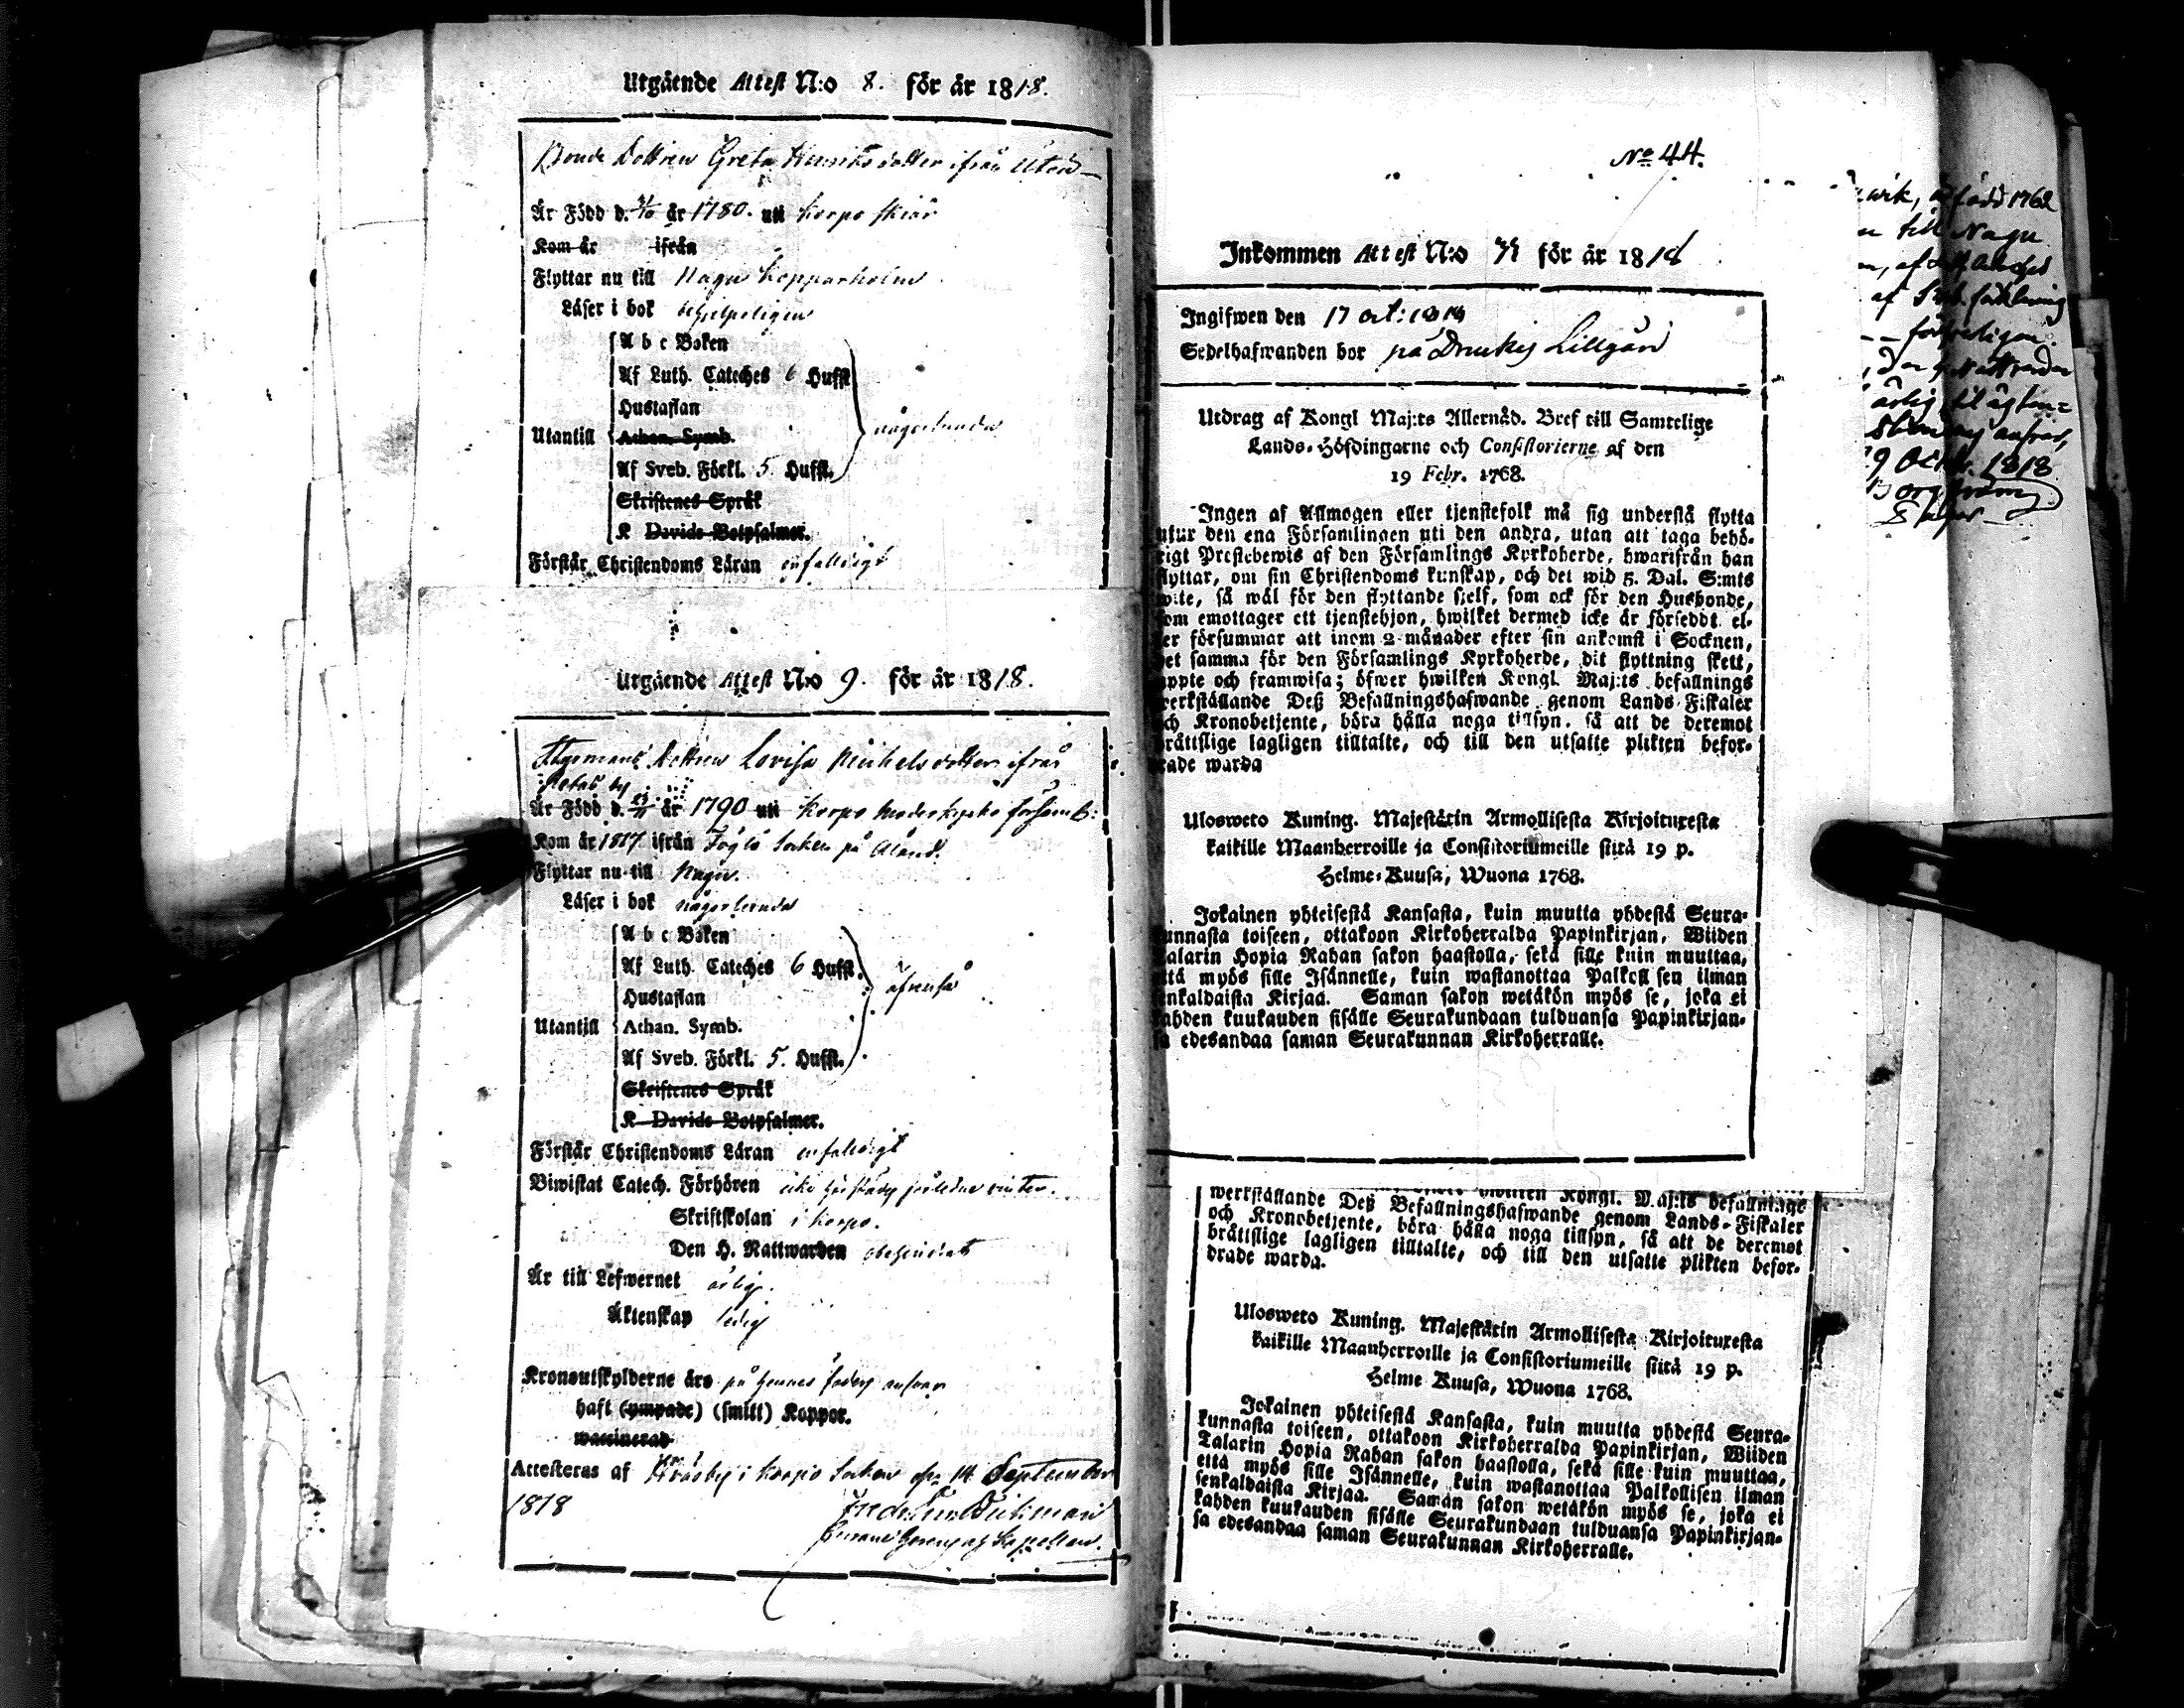 Utgående Attest N:o 8. för år 1818.
Bonde Dottren Greta Henriksdotter ifrån Utön
Är Född d. år 1780. uti Korpo skiär
Kom år ifrån
Flyttar nu till Nagu Kopparholm
Läser i bok behjelpeligen
A b c Boken
Af Luth. Catechs 6 Hufst.
Hustaflan
Utantill Athan. Symb. någorlunda
Af Sveb. Förkl. 5. Hufst.
Skriftenes Språk
K Davids Botpsalmer.
Förstår Christendoms Läran enfalldigt
Utgående Attest N:o 9. för år 1818.
Dottren Lovisa Michelsdotter ifrån
by
Är Född d. år 1790 uti Korpo moderkyrko församl:
Kom år 1817 ifrån Föglö Socken på Åland.
Flyttar nu till Nagu.
Läser i bok någorlunda
A b c Boken
Af Luth. Cateches 6 Hufst.
Hustaflan äfvenså
Utantill Athan. Symb.
Af Sveb. Förkl. 5. Hufst.
Skriftenes Språk
K Davids Botpsalmer.
Förstår Christendoms Läran enfalldigt
Biwistat Catech. Förhören icke förledne vinter.
Skriftskolan i Korpo.
Den H. Nattwarden
Är till Lefwernet ärlig.
Äktenskap ledig
Kronoutskylderne äro på hennes faders ansvar
haft (ympade) (smitt) Koppor.
waccinerad
Attesteras af i Korpo Socken d. 14 September
1818
Kapellan.
No 44.
Inkommen Attest N:o för år 181
Ingifwen den 17 oct:
Sedelhafwanden bor på Lillgård
Utdrag af Kongl Maj:ts Allernåd. Bref till Samtelige
Lands-Höfdingarne och Consistorierne af den
19 Febr. 1768.
Ingen af Allmogen eller tjenstefolk må sig understå flytta
utur den ena Församlingen uti den andra, utan att taga behö-
rigt Prestebewis af den Församlings Kyrkoherde, hwarifrån han
flyttar, om sin Christendoms kunskap, och det wid 5. Dal. S:mts
wite, så wäl för den flyttande sjelf, som ock för den Husbonde,
som emottager ett tjenstehjon, hwilket dermed icke är försedt, el-
ler försummar att inom 2 månader efter sin ankomst i Socknen,
det samma för den Församlings Kyrkoherde, dit flyttning skett,
uppte och framwisa; öfwer hwilken Kongl. Maj:ts befallnings
werkställande Deß Befallningshafwande genom Lands-Fiskaler
och Kronobetjente, böra hålla noga tillsyn, så att de deremot
brättslige lagligen tilltalte, och till den utsatte plikten befor-
drade warda
Ulosweto Kuning. Majestätin Armollisesta Kirjoituxesta
kaikille Maanherroille ja Consistoriumeille siitä 19 p.
Helme-Kuusa, Wuona 1768.
Jokainen yhteisestä Kansasta, kuin muutta yhdestä Seura-
kunnasta toiseen, ottakoon Kirkoherralda Papinkirjan, Wiiden
Talarin Hopia Rahan sakon haastolla, sekä sille kuin muuttaa,
että myös sille Isännelle, kuin wastanottaa Palkollisen ilman
senkaldaista Kirjaa. Saman sakon wetäkön myös se, joka ei
kahden kuukauden sisälle Seurakundaan tulduansa Papinkirjan-
sa edesandaa saman Seurakunnan Kirkoherralle.
hwilken Kongl. Maj:ts befallnings
werkställande Deß Befallningshafwande genom Lands-Fiskaler
och Kronobetjente, böra hålla noga tillsyn, så att de deremot
brättslige lagligen tilltalte, och till den utsatte plikten befor-
drade warda.
Ulosweto Kuning. Majestätin Armollisesta Kirjoituxesta
kaikille Maanherroille ja Consistoriumeille siitä 19 p.
Helme Kuusa, Wuona 1768.
Jokainen yhteisestä Kansasta, kuin muutta yhdestä Seura-
kunnasta toiseen, ottakoon Kirkoherralda Papinkirjan, Wiiden
Talarin Hopia Rahan sakon haastolla, sekä sille kuin muuttaa,
että myös sille Isännelle, kuin wastanottaa Palkollisen ilman
senkaldaista Kirjaa. Saman sakon wetäkön myös se, joka ei
kahden kuukauden sisälle Seurakundaan tulduansa Papinkirjan-
sa edesandaa saman Seurakunnan Kirkoherralle.
wik, född 1762
till Nagu
af
af Sveb. förklaring
ärlig, til
ansvar,
Octbr. 1818